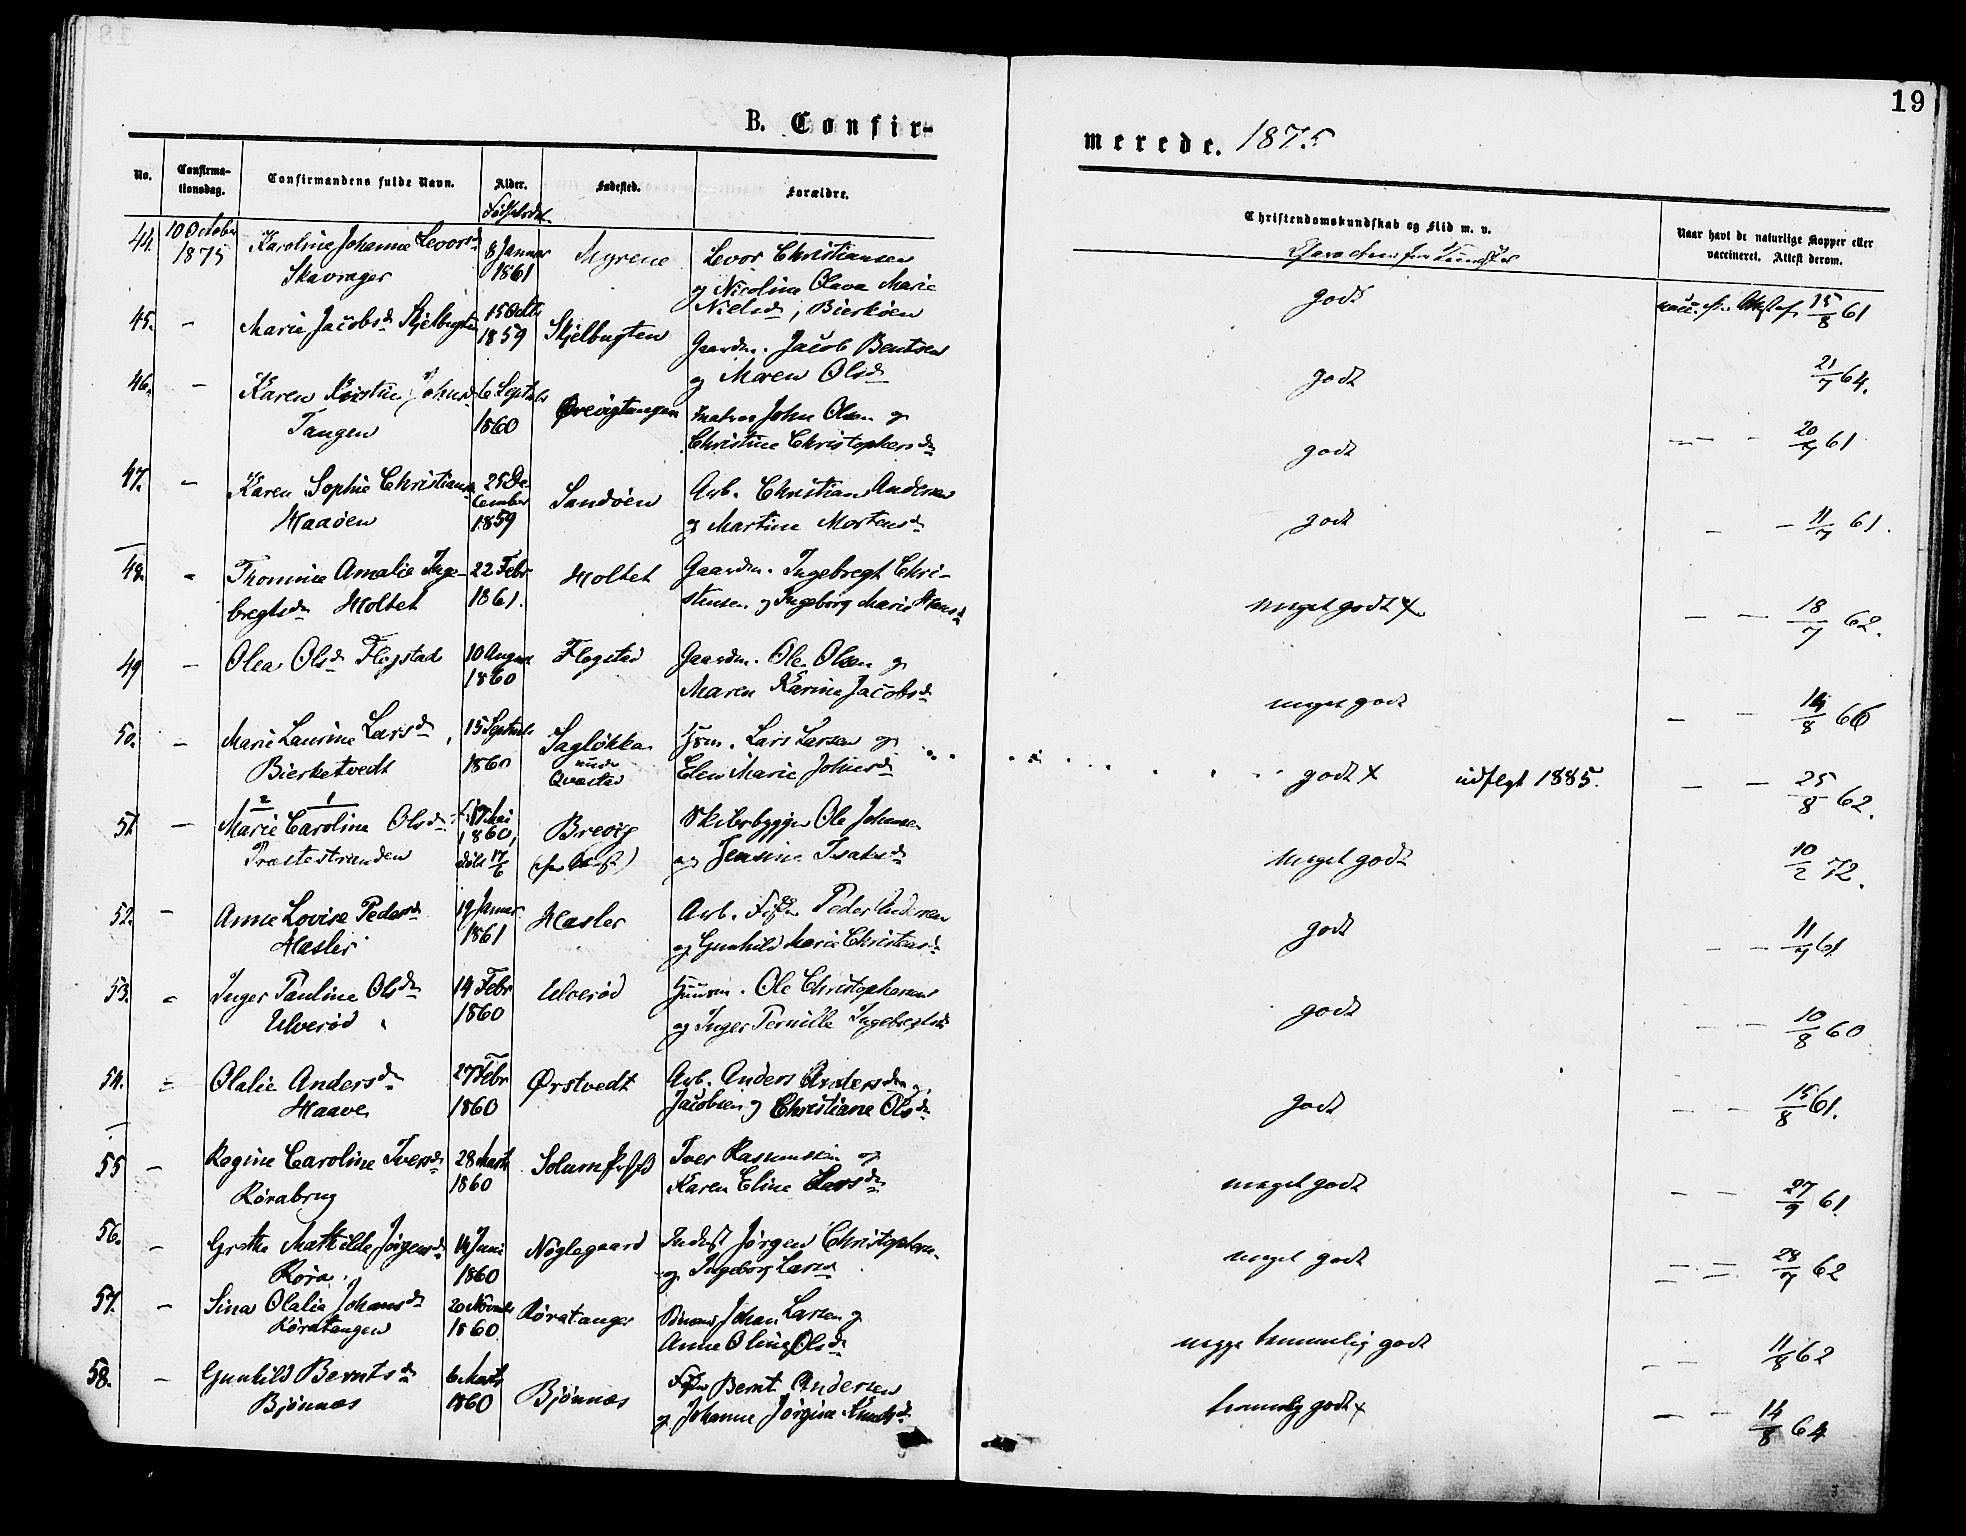 19
B. Confir-
merede. 1875
No.
Confirma-
tionsdag.
Confirmandens fulde Navn.
Alder.
Fødested.
Forældre.
Christendomskundskab og Flid m. v.
Naar havt de naturlige Kopper eller
vaccineret. Attest derom.
44. 10 October 1875
Karoline Johanne Levorsd
Skavrager
8 Januar
1861
Myrene
Levor Christiansen
og Nicoline Olava Marie
Nielsd, Bierkøen
godt
15/8 61
45. -
Marie Jacobsd Skjelbugten
15 Octb
1859
Skjelbugten
Gaardm. Jacob Bentsen
og Maren Olsd
godt
21/7 64.
46. -
Karen Kristine Johnsd
Tangen
6 Septbr
1860
Ørevigtangen
Matros John Olsen og
Christine Christophersd
godt
- - 20/7 61
47. -
Karen Sophie Christiansd
Haaøen
25 De
cember
1859
Sandøen
Arb. Christian Andersen
og Martine Mortensd
godt
- - 11/7 61.
48. -
Thomine Amalie Inge-
bregtsd Holtet
22 Febr
1861.
Holtet
Gaardm. Ingebregt Chri-
stensen og Ingeborg Marie Hansd
meget godt x
- - 18/7 62.
49 -
Olea Olsd Flogstad
10 August
1860
Flogstad
Gaardm. Ole Olsen og
Maren Karine Jacobsd
meget godt
- - 14/8 66
50. -
Marie Laurine Larsd
Bierketvedt
15 Septbr
1860
Sagløkka
under
Qvastad
Lars Larsen og
Elen Marie Johnsd
godt x udflgt 1885.
- - 25/8 62.
51 -
2 1
Marie Caroline Olsd
Traatestranden
Mai
1860,
døbt 17/6
Brevig
Skibsbygger Ole Johnsen
og Jensine Isaksd
Meget godt
10/2 72.
52. -
Anne Lovise Pedersd
Hæsler
19 Januar
1861
Hæsler
Arb. Peder Andersen
og Gunhild Marie Christensd
godt
- - 11/7 61
53. -
Inger Pauline Olsd
Ulverød
14 Febr
1860
Ulverød
Ole Christophersen
og Inger Pernille Ingebregtsd
godt
- - 10/8 60
54. -
Olalie Andersd
Haave
27 Febr
1860
Ørstvedt
Arb. Anders
Jacobsen og Christiane Olsd
godt
- - 15/8 61.
55 -
Regine Caroline Iversd
Rørabrug
28 Marts
1860
Solum
Iver Rasmussen og
Karen Eline Larsd
meget godt
- - 27/9 61.
56. -
Grethe Mathilde Jørgensd
Røra
14 Juni
1860
Nøglegaard
Inderst Jørgen Christophersen
og Ingeborg Larsd
meget godt
- - 28/7 62
57. -
Sina Olalia Johansd
Røratangen
20 Novmbr
1860
Røratangen
Johan Larsen og
Anne Oline Olsd
temmelig godt
- - 11/8 62
58. -
Gunhild Berntsd
Bjønnæs
6 Marts
1860
Bjønnæs
Bernt Andersen
og Johanne Jørgine Knudsd
temmelig godt x
- - 14/8 64